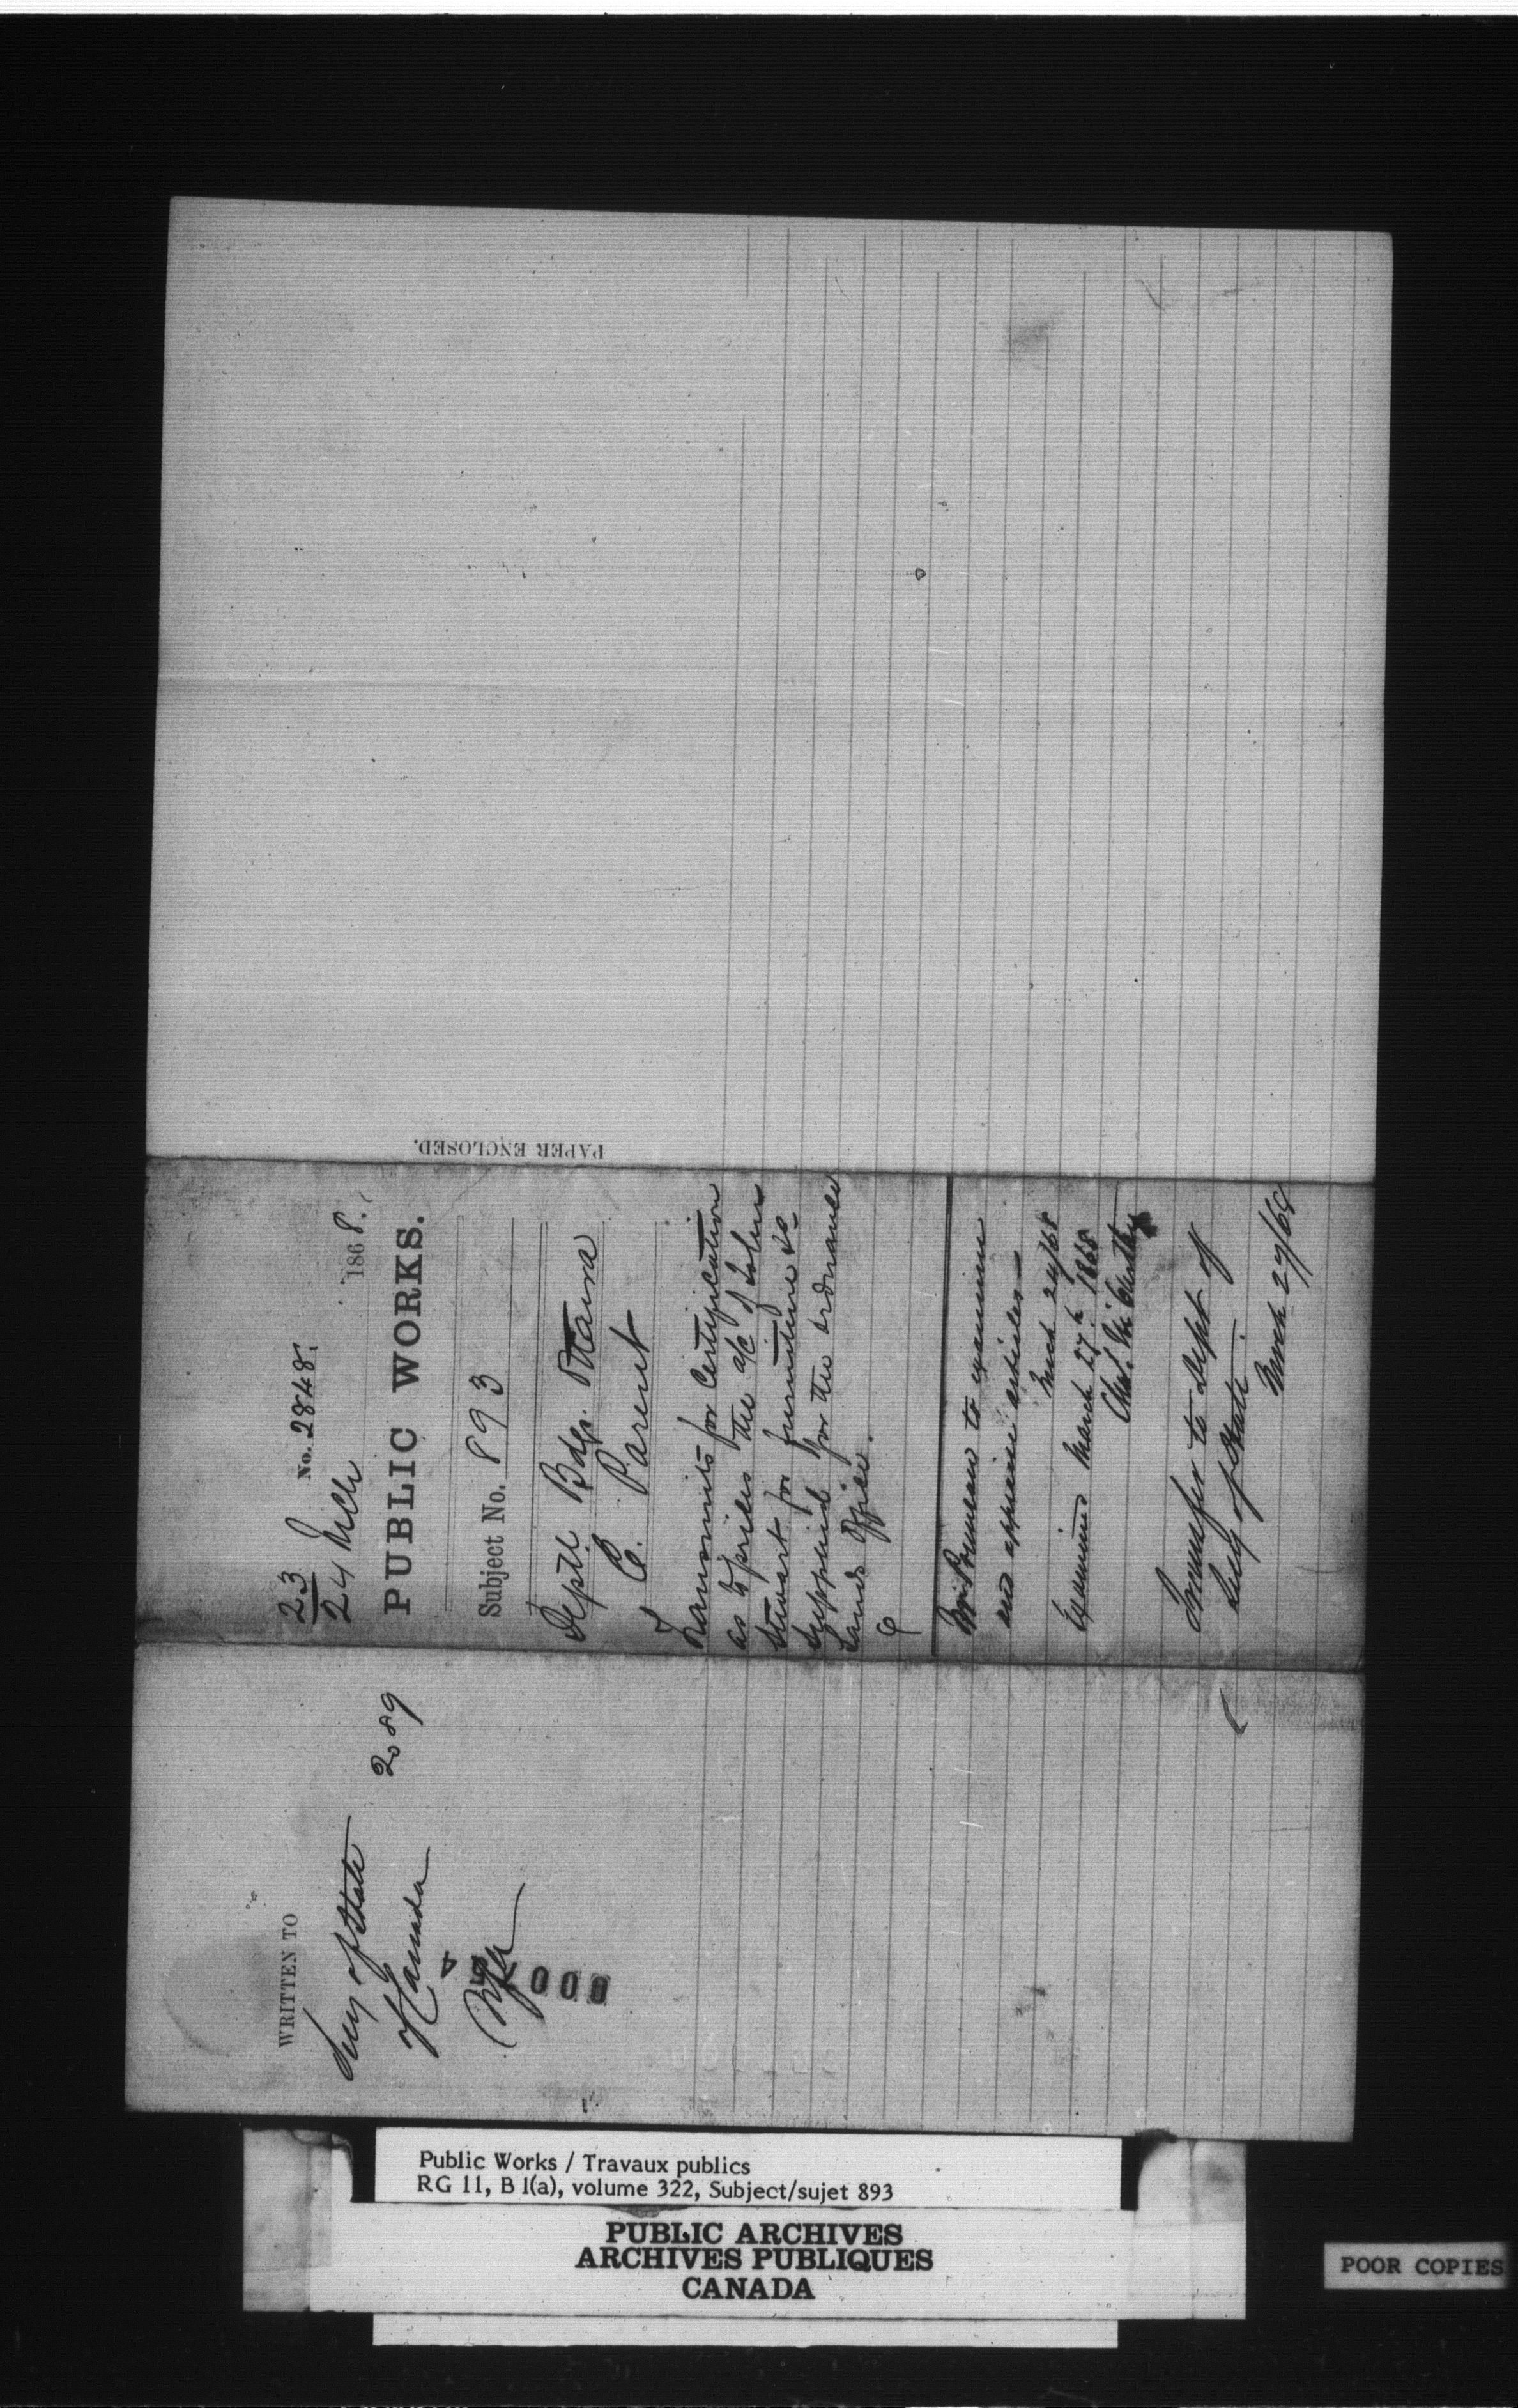 23
24 Mch
No. 2848.
1868.
PUBLIC WORKS.
Subject No. 893
Deptl Bdgs. Ottawa
C. Parent
Transmits for Certification
as to prices the a/c of John
Stewart for furniture &c
supplied for the Ordnance
Lands Office.
to examine
and appraise articles
March 24/68
Examined March 27th 1868
Chas. McCarthy
Transfer to Dept of
Secy of State.
March 27/68
PAPER ENCLOSED.
WRITTEN TO
Secy of State
of Canada
2089
000
Public Works / Travaux publics
RG 11, B 1(a), volume 322, Subject/sujet 893
PUBLIC ARCHIVES
ARCHIVES PUBLIQUES
CANADA
POOR COPIES